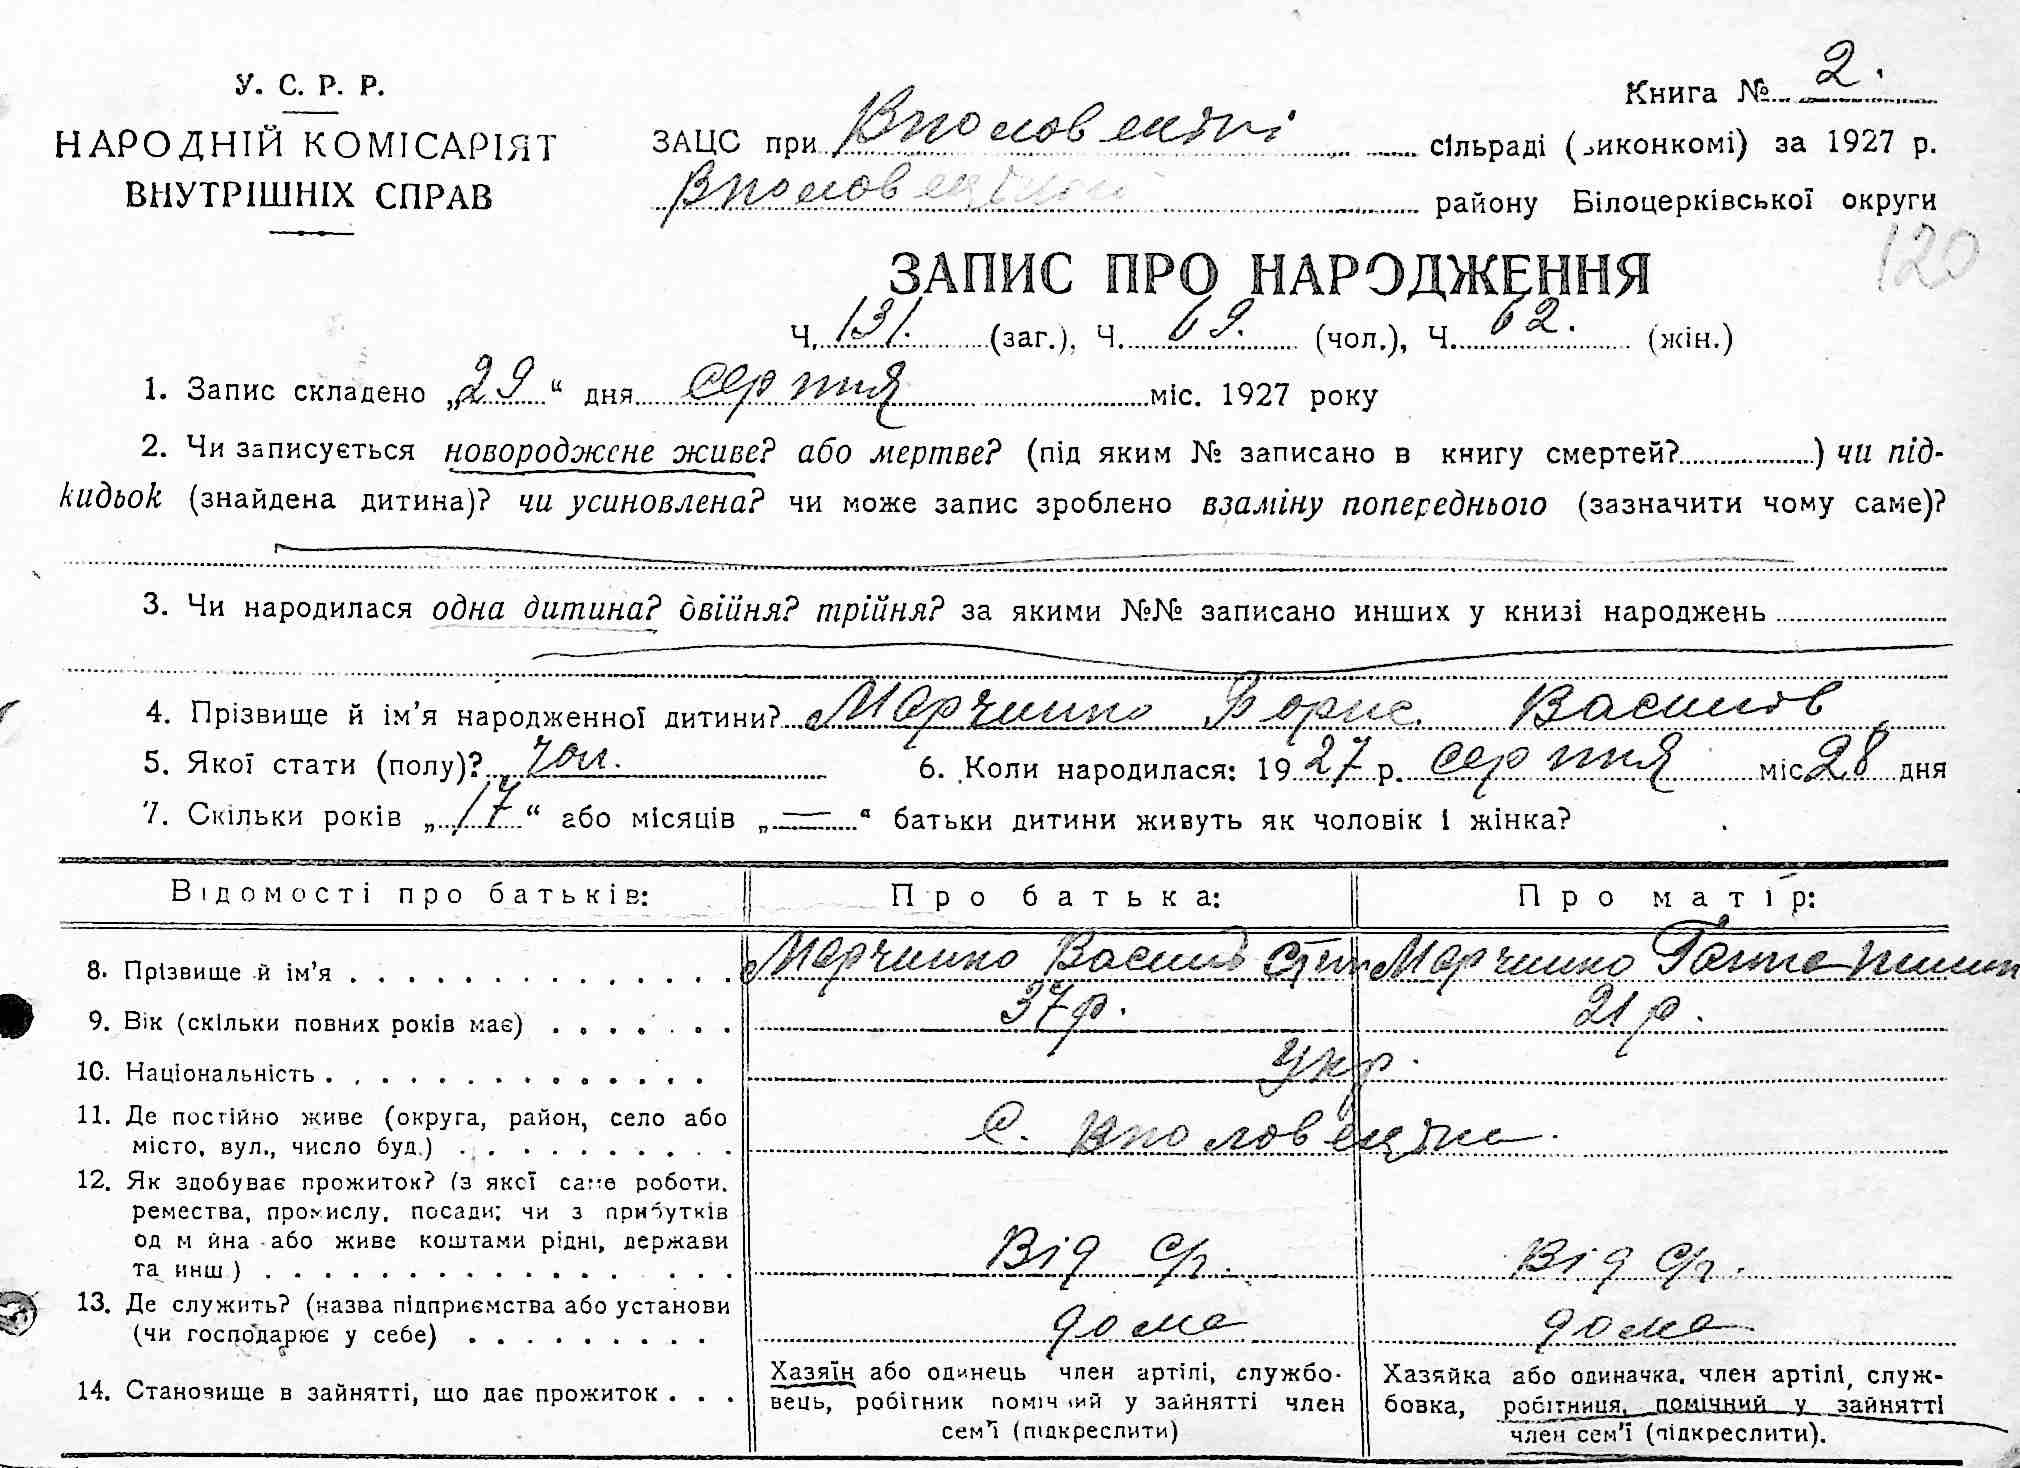 У. С. Р. Р.
НАРОДНІЙ КОМІСАРІЯТ
ВНУТРІШНІХ СПРАВ
Книга № 2.
ЗАЦС при сільраді (виконкомі) за 1927 р.
району Білоцерківської округи
120
ЗАПИС ПРО НАРОДЖЕННЯ
Ч. 131. (заг.), Ч. 69. (чол.), Ч. 62. (жін.)
1. Запис складено „29“ дня серпня міс. 1927 року
2. Чи записується новороджене живе? або мертве? (під яким № записано в книгу смертей?) чи під-
кидьок (знайдена дитина)? чи усиновлена? чи може запис зроблено взаміну попереднього (зазначити чому саме)?
3. Чи народилася одна дитина? двійня? трійня? за якими №№ записано инших у книзі народжень
4. Прізвище й ім'я народженної дитини? Марченко Борис Васильов
5. Якої стати (полу)? чол. 6. Коли народилася: 1927 р. серпня міс 28 дня
7. Скільки років „17“ або місяців „—“ батьки дитини живуть як чоловік і жінка?
Відомості про батьків: Про батька: Про матір:
8. Прізвище й ім'я Марченко Василь Марченко Ганна
9. Вік (скільки повних років має) 37 р. 21 р.
10. Національність Укр.
11. Де постійно живе (округа, район, село або
місто, вул., число буд.) с.
12. Як здобуває прожиток? (з якої саме роботи,
ремества, промислу, посади; чи з прибутків
од майна або живе коштами рідні, держави
та инш.) Від с/г. Від с/г.
13. Де служить? (назва підприємства або установи
(чи господарює у себе) дома дома
14. Становище в зайнятті, що дає прожиток
Хазяїн або одинець член артілі, службо-
вець, робітник помічний у зайнятті член
сем'ї (підкреслити)
Хазяйка або одиначка, член артілі, служ-
бовка, робітниця, помічний у зайнятті
член сем'ї (підкреслити).